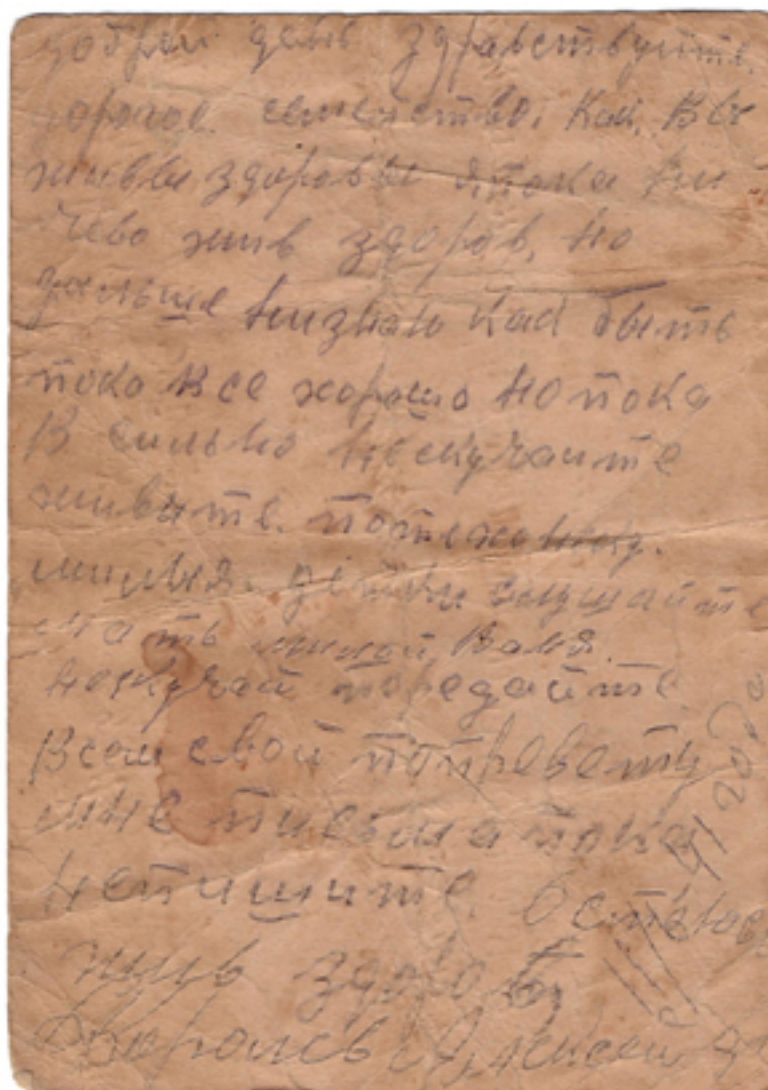 добрай день здравствуйте
дорогое семейство. Как Вы
живы здоровы я пока ни
чево жив здоров, но
дальше низнаю как быть
пока все хорошо но пока
В сильно нескучайте
живите.
милыя детки слушайте
мать милой Валя
нескучай передайте
Всем свой попревету
мне письма пока
непишите. Остаюсь
жив здоров
Королев Алексей
41 году